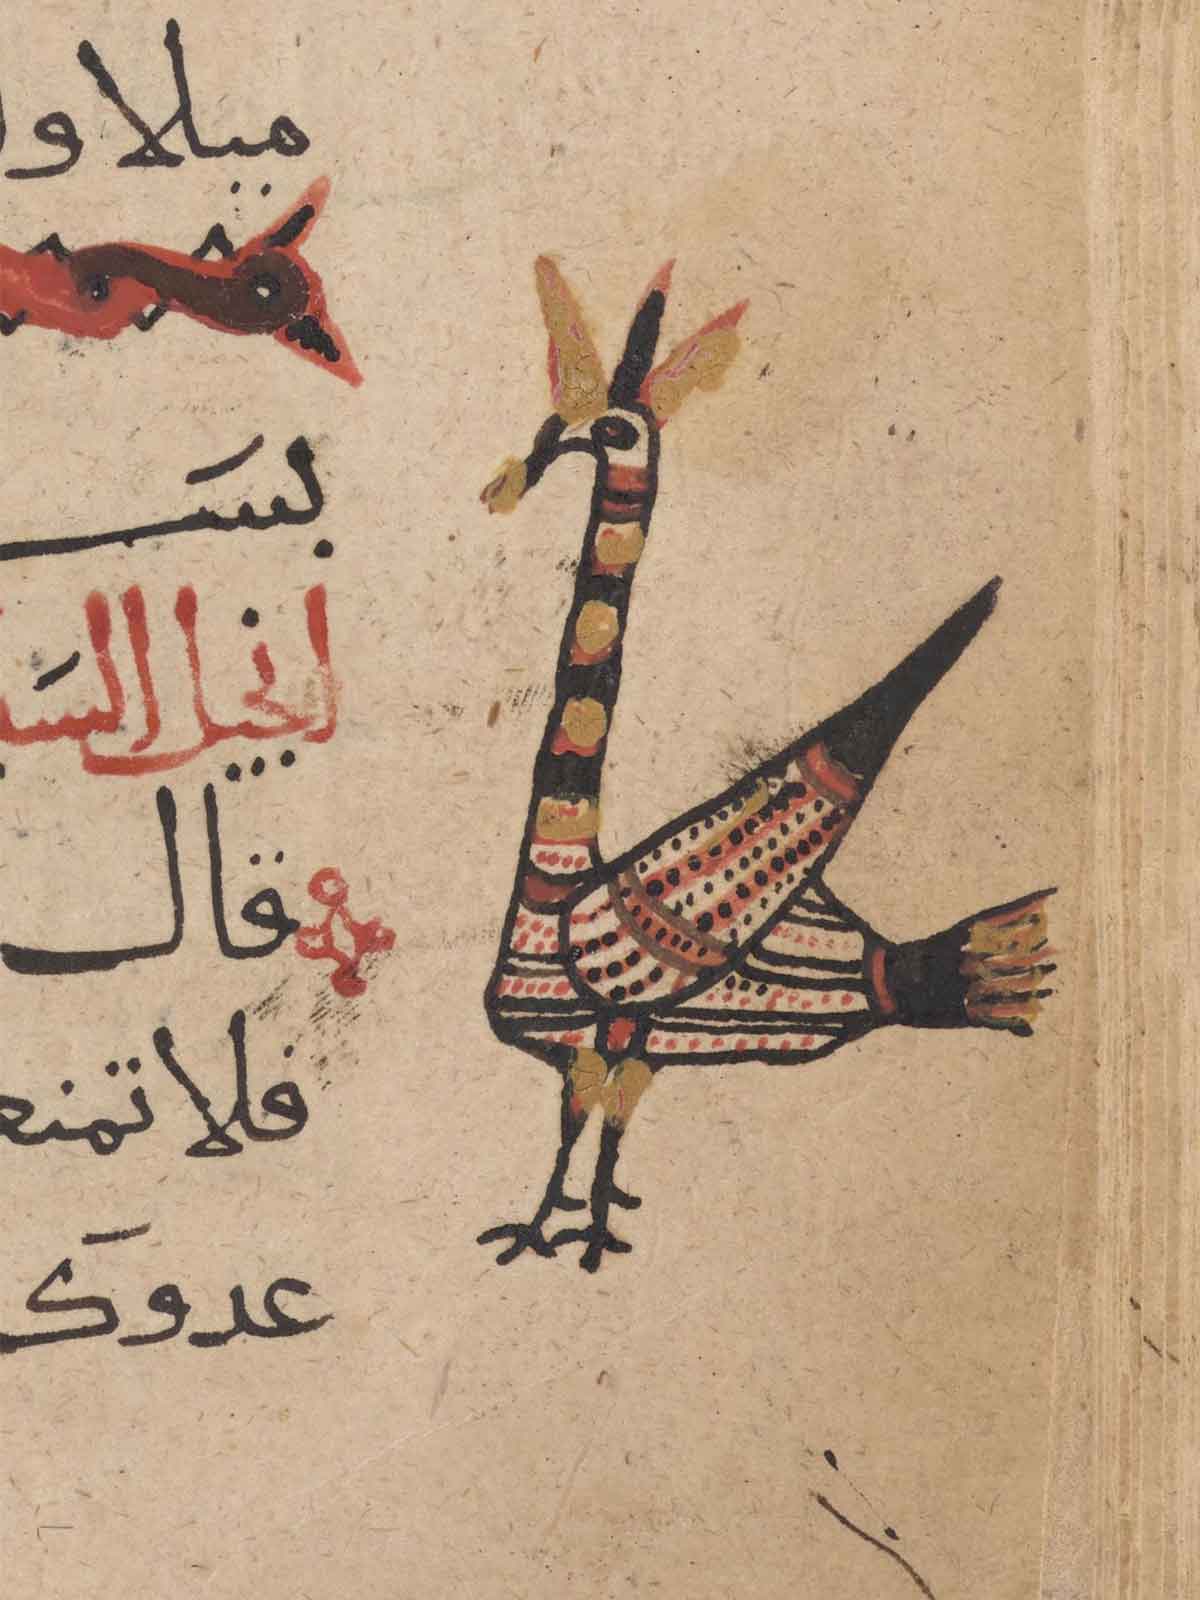 ميلا و
بسـ
انجيل السـ
قال
فلا تمنع
عدوك